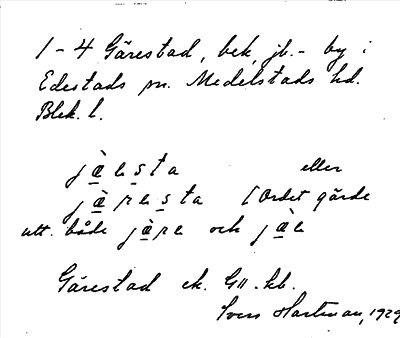 1-4 Gärestad, bek. jb.- by i
Edestads sn. Medelstads hd.
Blek. l.
jæ̀sta eller
jæ̀resta [Ordet gärde
utt. både jæ̀re och jæ̀
Gärestad ek. G11. kb.
Sven Hartman, 1929